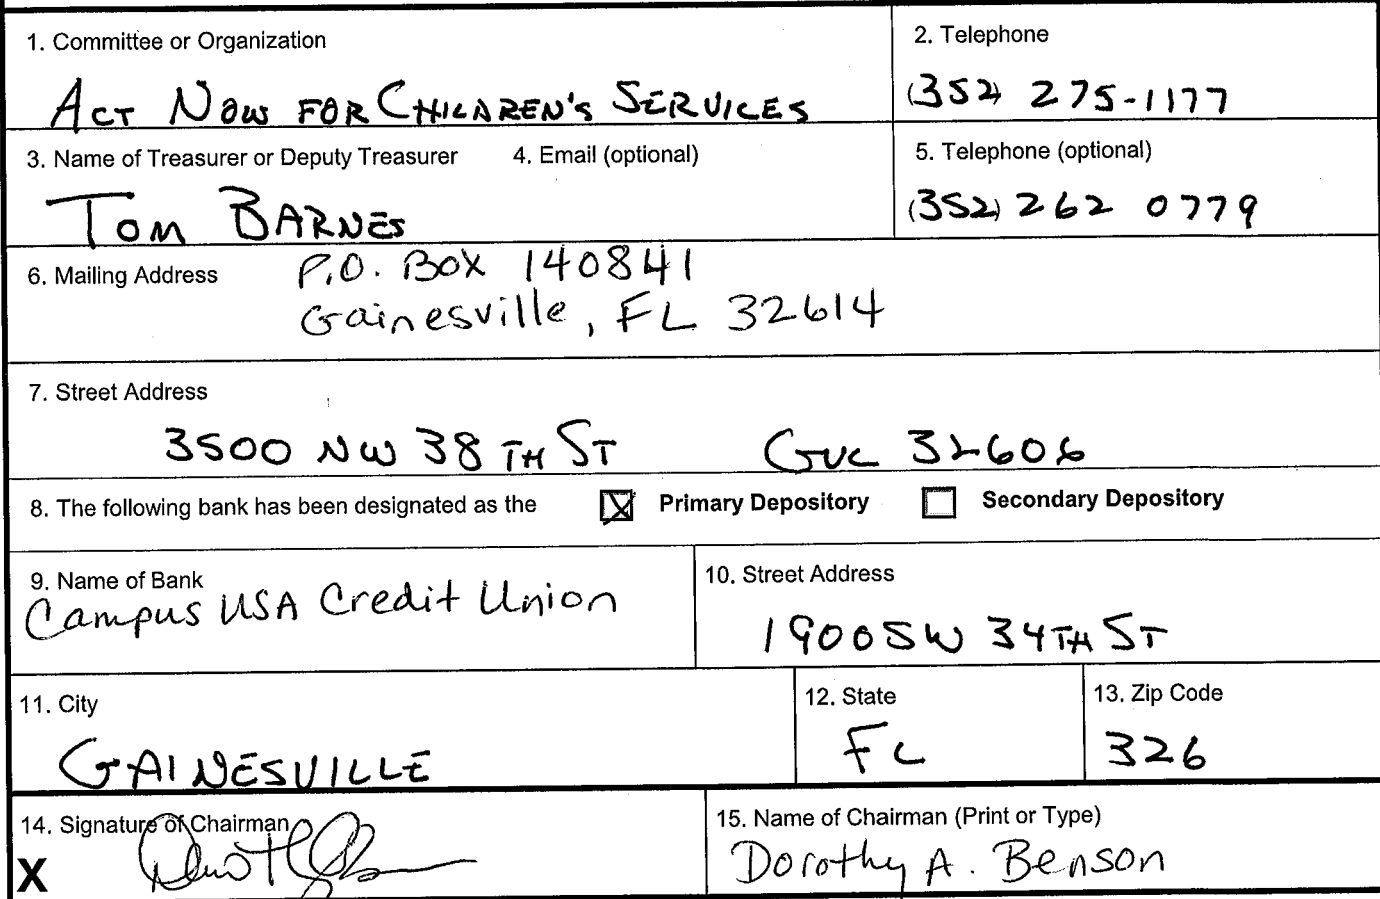 1. Committee or Organization
2. Telephone
ACT NOW FOR CHILDREN'S SERVICES
(352) 275-1177
3. Name of Treasurer or Deputy Treasurer 4. Email (optional)
5. Telephone (optional)
TOM BARNES
(352) 262 0779
6. Mailing Address
P.O. Box 140841
Gainesville, FL 32614
7. Street Address
3500 NW 38 TH ST GVL 32606
8. The following bank has been designated as the Primary Depository Secondary Depository
9. Name of Bank
Campus USA Credit Union
10. Street Address
1900 SW 34TH ST
11. City
12. State
13. Zip Code
GAINESVILLE
FL
326
14. Signature of Chairman
X
15. Name of Chairman (Print or Type)
Dorothy A. Benson